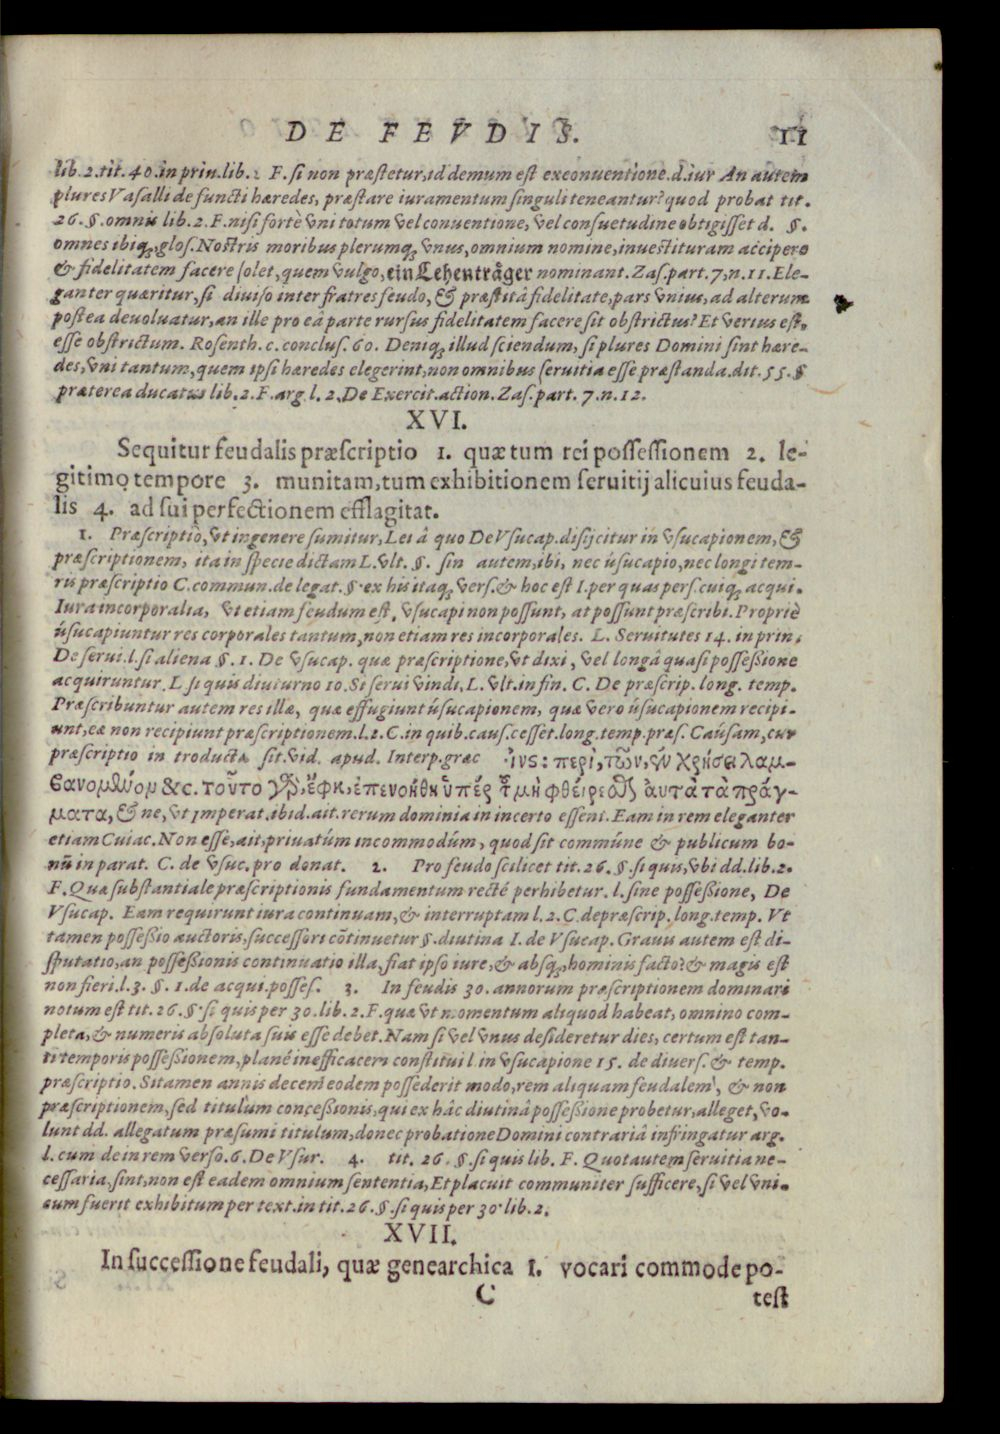 DE FEVDIS. 11
lib. 2. tit. 40. in prin. lib. 2 F. si non præstetur, id demum est ex conuentione. d. iur An autem
plures Vasalli defuncti hæredes, præstare iuramentum singuli teneantur? quod probat tit.
26. §. omnis lib. 2. F. nisi fortè vni totum vel conuentione, vel consuetudine obtigisset d. §.
omnes ibiq́; glos. Nostris moribus plerumq́; vnus, omnium nomine, inuestituram accipere
& fidelitatem facere solet, quem vulgo, ein Lehenträger nominant. Zas. part. 7, n. 11. Ele-
ganter quæritur, si diuiso inter fratres feudo, & præstitâ fidelitate, pars vnius, ad alterum
postea deuoluatur, an ille pro eâ parte rursus fidelitatem facere sit obstrictus? Et verius est,
esse obstrictum. Rosenth. c. conclus. 60. Deniq́; illud sciendum, si plures Domini sint hære-
des, vni tantum, quem ipsi hæredes elegerint, non omnibus seruitia esse præstanda. dit. 55. §
præterea ducatus lib. 2. F. arg. l. 2. De Exercit. action. Zas. part. 7. n. 12.
XVI.
Sequitur feudalis præscriptio 1. quæ tum rei possessionem 2. le-
gitimo tempore 3. munitam, tum exhibitionem seruitij alicuius feuda-
lis 4. ad sui perfectionem efflagitat.
1. Præscriptio, vt in genere sumitur, Lei â quo De Vsucap. disijcitur in vsucapionem, &
præscriptionem, ita in specie dictam L. vlt. §. sin autem, ibi, nec úsucapio, nec longi tem-
ris præscriptio C. commun. de legat. §. ex his itaq́; vers. & hoc est I. per quas pers. cuiq́; acqui.
Iura incorporalia, vt etiam feudum est, vsucapi non possunt, at possunt præscribi. Propriè
úsucapiuntur res corporales tantum, non etiam res incorporales. L. Seruitutes 14. in prin.
De serui. l. si aliena §. 1. De vsucap. quæ præscriptione, vt dixi, vel longâ quasi possessione
acquiruntur. L si quis diuturno 10. Si serui vindi, L. vlt. in fin. C. De præscrip. long. temp.
Præscribuntur autem res illæ, quæ effugiunt úsucapionem, quæ vero úsucapionem recipi-
unt, eæ non recipiunt præscriptionem. l. 2. C. in quib. caus. cesset. long. temp. præs. Caúsam, cur
præscriptio in troducta sit. vid. apud. Interp. græc ἰνς: περὶ, τῶν, ὧν χρήσει λαμ-
βανομένων &c. τοῦτο γὸ, ἔφη, ἐπενοήθη ὑπὲρ τ μὴ φθείρεσθ αὐτὰ τὰ πράγ-
ματα, & ne, vt imperat. ibid. ait. rerum dominia in incerto essent. Eam in rem eleganter
etiam Cuiac. Non esse, ait, priuatúm incommodúm, quod sit commúne & publicum bo-
nũ in parat. C. de vsuc. pro donat. 2. Pro feudo scilicet tit. 26. §. si quis, vbi dd. lib. 2.
F. Quæ substantiale præscriptionis fundamentum recté perhibetur. l. sine possessione, De
Vsucap. Eam requirunt iura continuam, & interruptam l. 2. C. de præscrip. long. temp. Vt
tamen possessio auctoris, successori cõtinuetur §. diutina I. de Vsucap. Grauis autem est di-
sputatio, an possessionis continuatio illa, fiat ipso iure, & absq́; hominis facto? & magis est
non fieri. l. 3. §. 1. de acqui. posses. 3. In feudis 30. annorum præscriptionem dominari
notum est tit. 26. §. si quis per 30. lib. 2. F. quæ vt momentum aliquod habeat, omnino com-
pleta, & numeris absoluta suis esse debet. Nam si vel vnus desideretur dies, certum est tan-
ti temporis possessionem, plané inefficacem constitui l. in vsucapione 15. de diuers. & temp.
præscriptio. Si tamen annis decem eodem possederit modo, rem aliquam feudalem, & non
præscriptionem, sed titulum concessionis, qui ex hâc diutinâ possessione probetur, alleget, vo-
lunt dd. allegatum præsumi titulum, donec probatione Domini contrariâ infringatur arg.
l. cum de in rem verso. 6. De Vsur. 4. tit. 26. §. si quis lib. F. Quot autem seruitia ne-
cessaria, sint, non est eadem omnium sententia, Et placuit communiter sufficere, si vel vni-
cum fuerit exhibitum per text. in tit. 26. §. si quis per 30. lib. 2.
XVII.
In successione feudali, quæ genearchica 1. vocari commode po-
C test